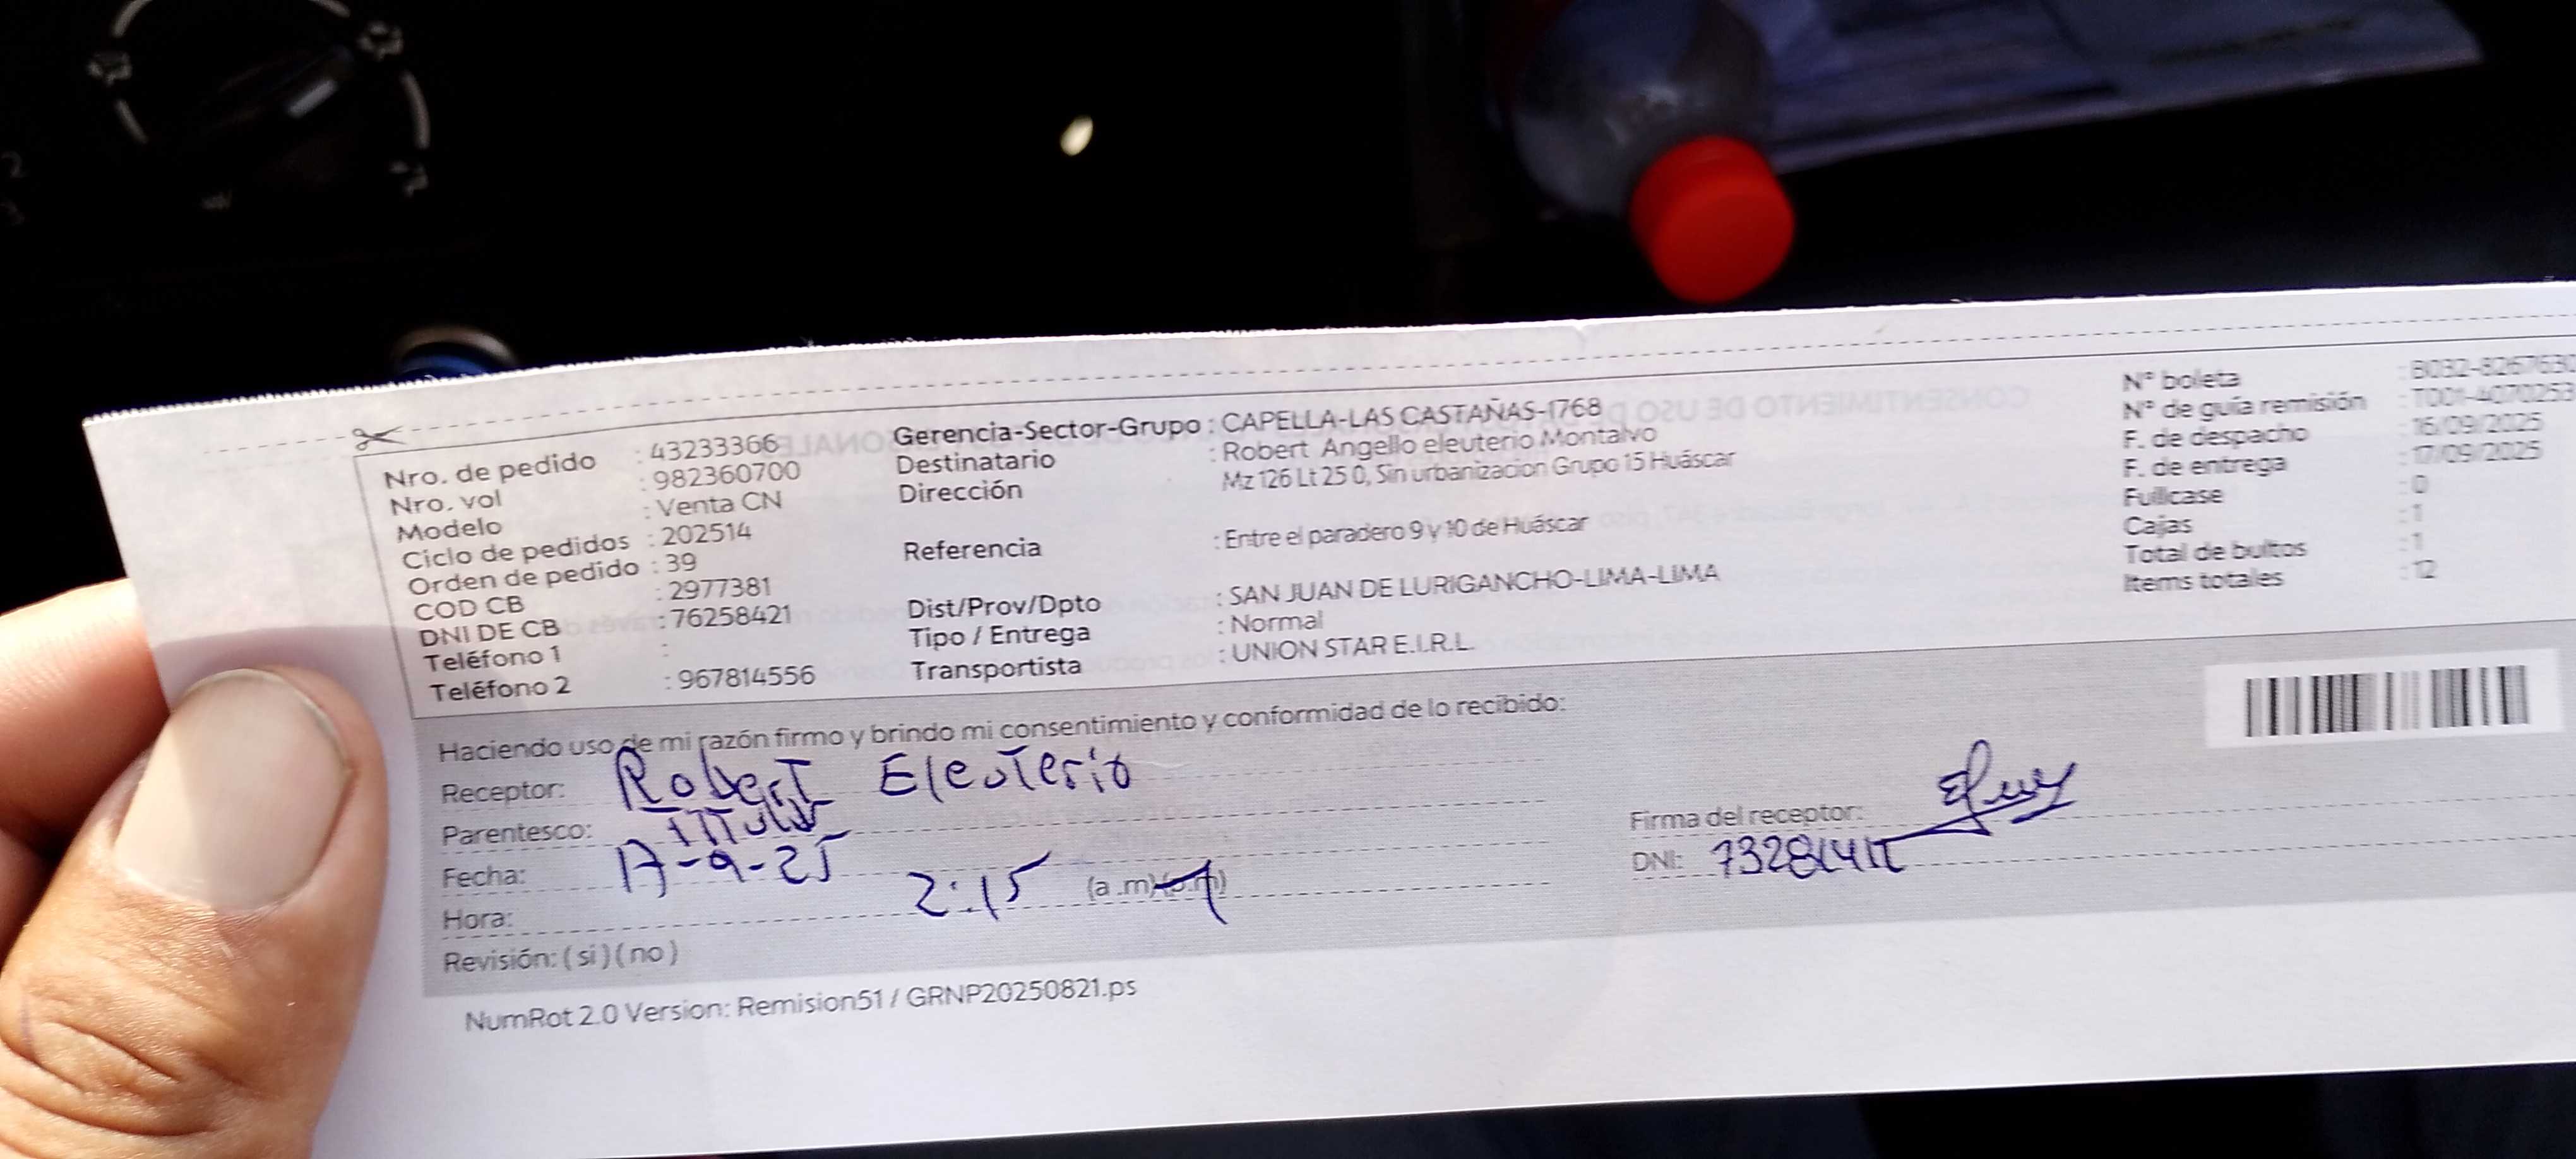 Nro. de pedido : 43233366
Nro. vol : 982360700
Modelo : Venta CN
Ciclo de pedidos : 202514
Orden de pedido : 39
COD CB : 2977381
DNI DE CB : 76258421
Teléfono 1 :
Teléfono 2 : 967814556
Gerencia-Sector-Grupo : CAPELLA-LAS CASTAÑAS-1768
Destinatario : Robert Angello eleuterio Montalvo
Dirección Mz 126 Lt 25 0, Sin urbanizacion Grupo 15 Huáscar
Referencia : Entre el paradero 9 y 10 de Huáscar
Dist/Prov/Dpto : SAN JUAN DE LURIGANCHO-LIMA-LIMA
Tipo / Entrega : Normal
Transportista : UNION STAR E.I.R.L.
N° boleta : B032-8267630
N° de guía remisión : T001-4070253
F. de despacho : 16/09/2025
F. de entrega : 17/09/2025
Fullcase : 0
Cajas : 1
Total de bultos : 1
Items totales : 12
Haciendo uso de mi razón firmo y brindo mi consentimiento y conformidad de lo recibido:
Receptor: Robert Eleuterio
Parentesco: Titular
Fecha: 17-9-25
Hora: 2:15 (a.m)(p.m)
Revisión: (si) (no)
Firma del receptor:
DNI:
NumRot 2.0 Version: Remision51 / GRNP20250821.ps